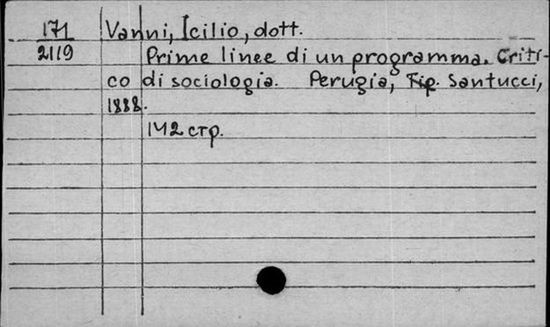 171 Vanni, Icilio, dott.
2119 Prime linee di un programma. Criti-
co di sociologia. Perugia, Tip. Santucci,
1888.
142 стр.